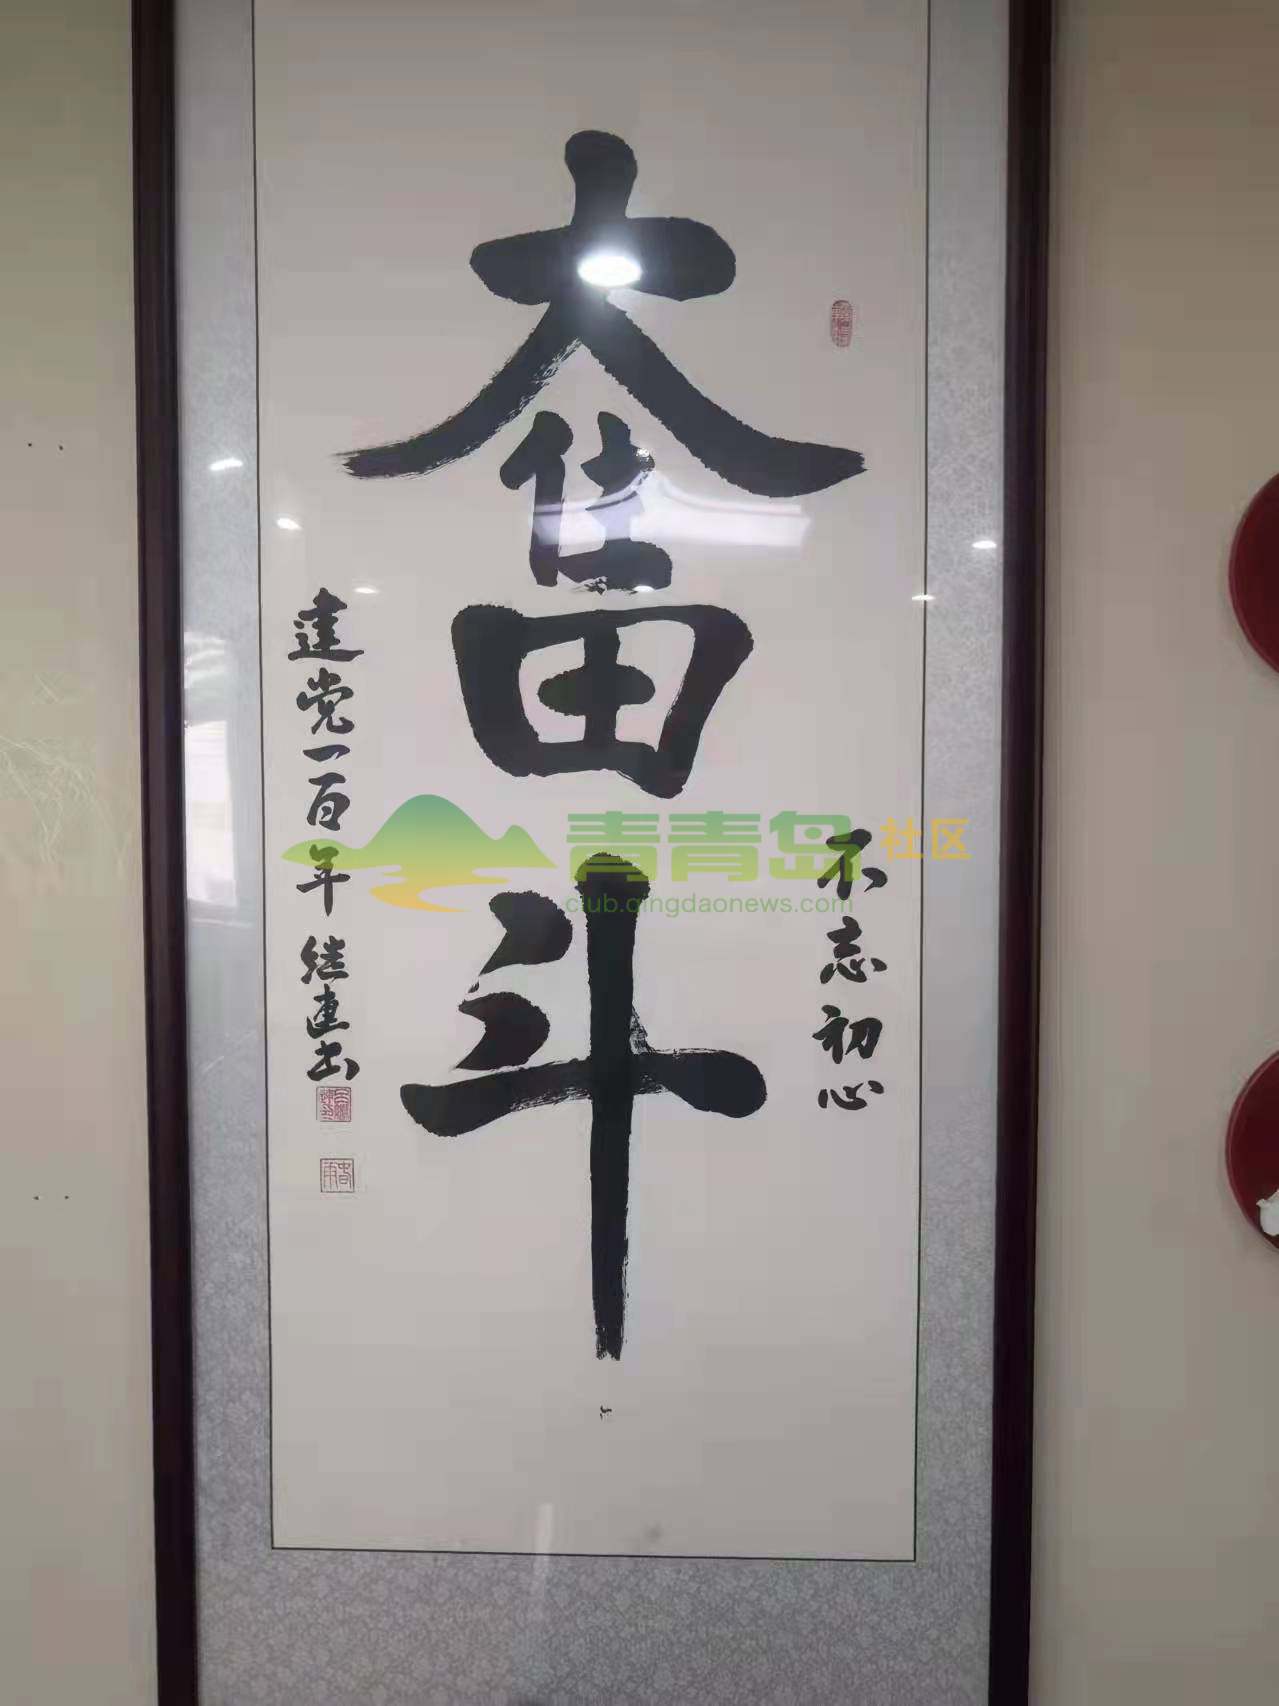 奮斗
不忘初心
建党一百年 继连书
青青岛社区
club.qingdaonews.com